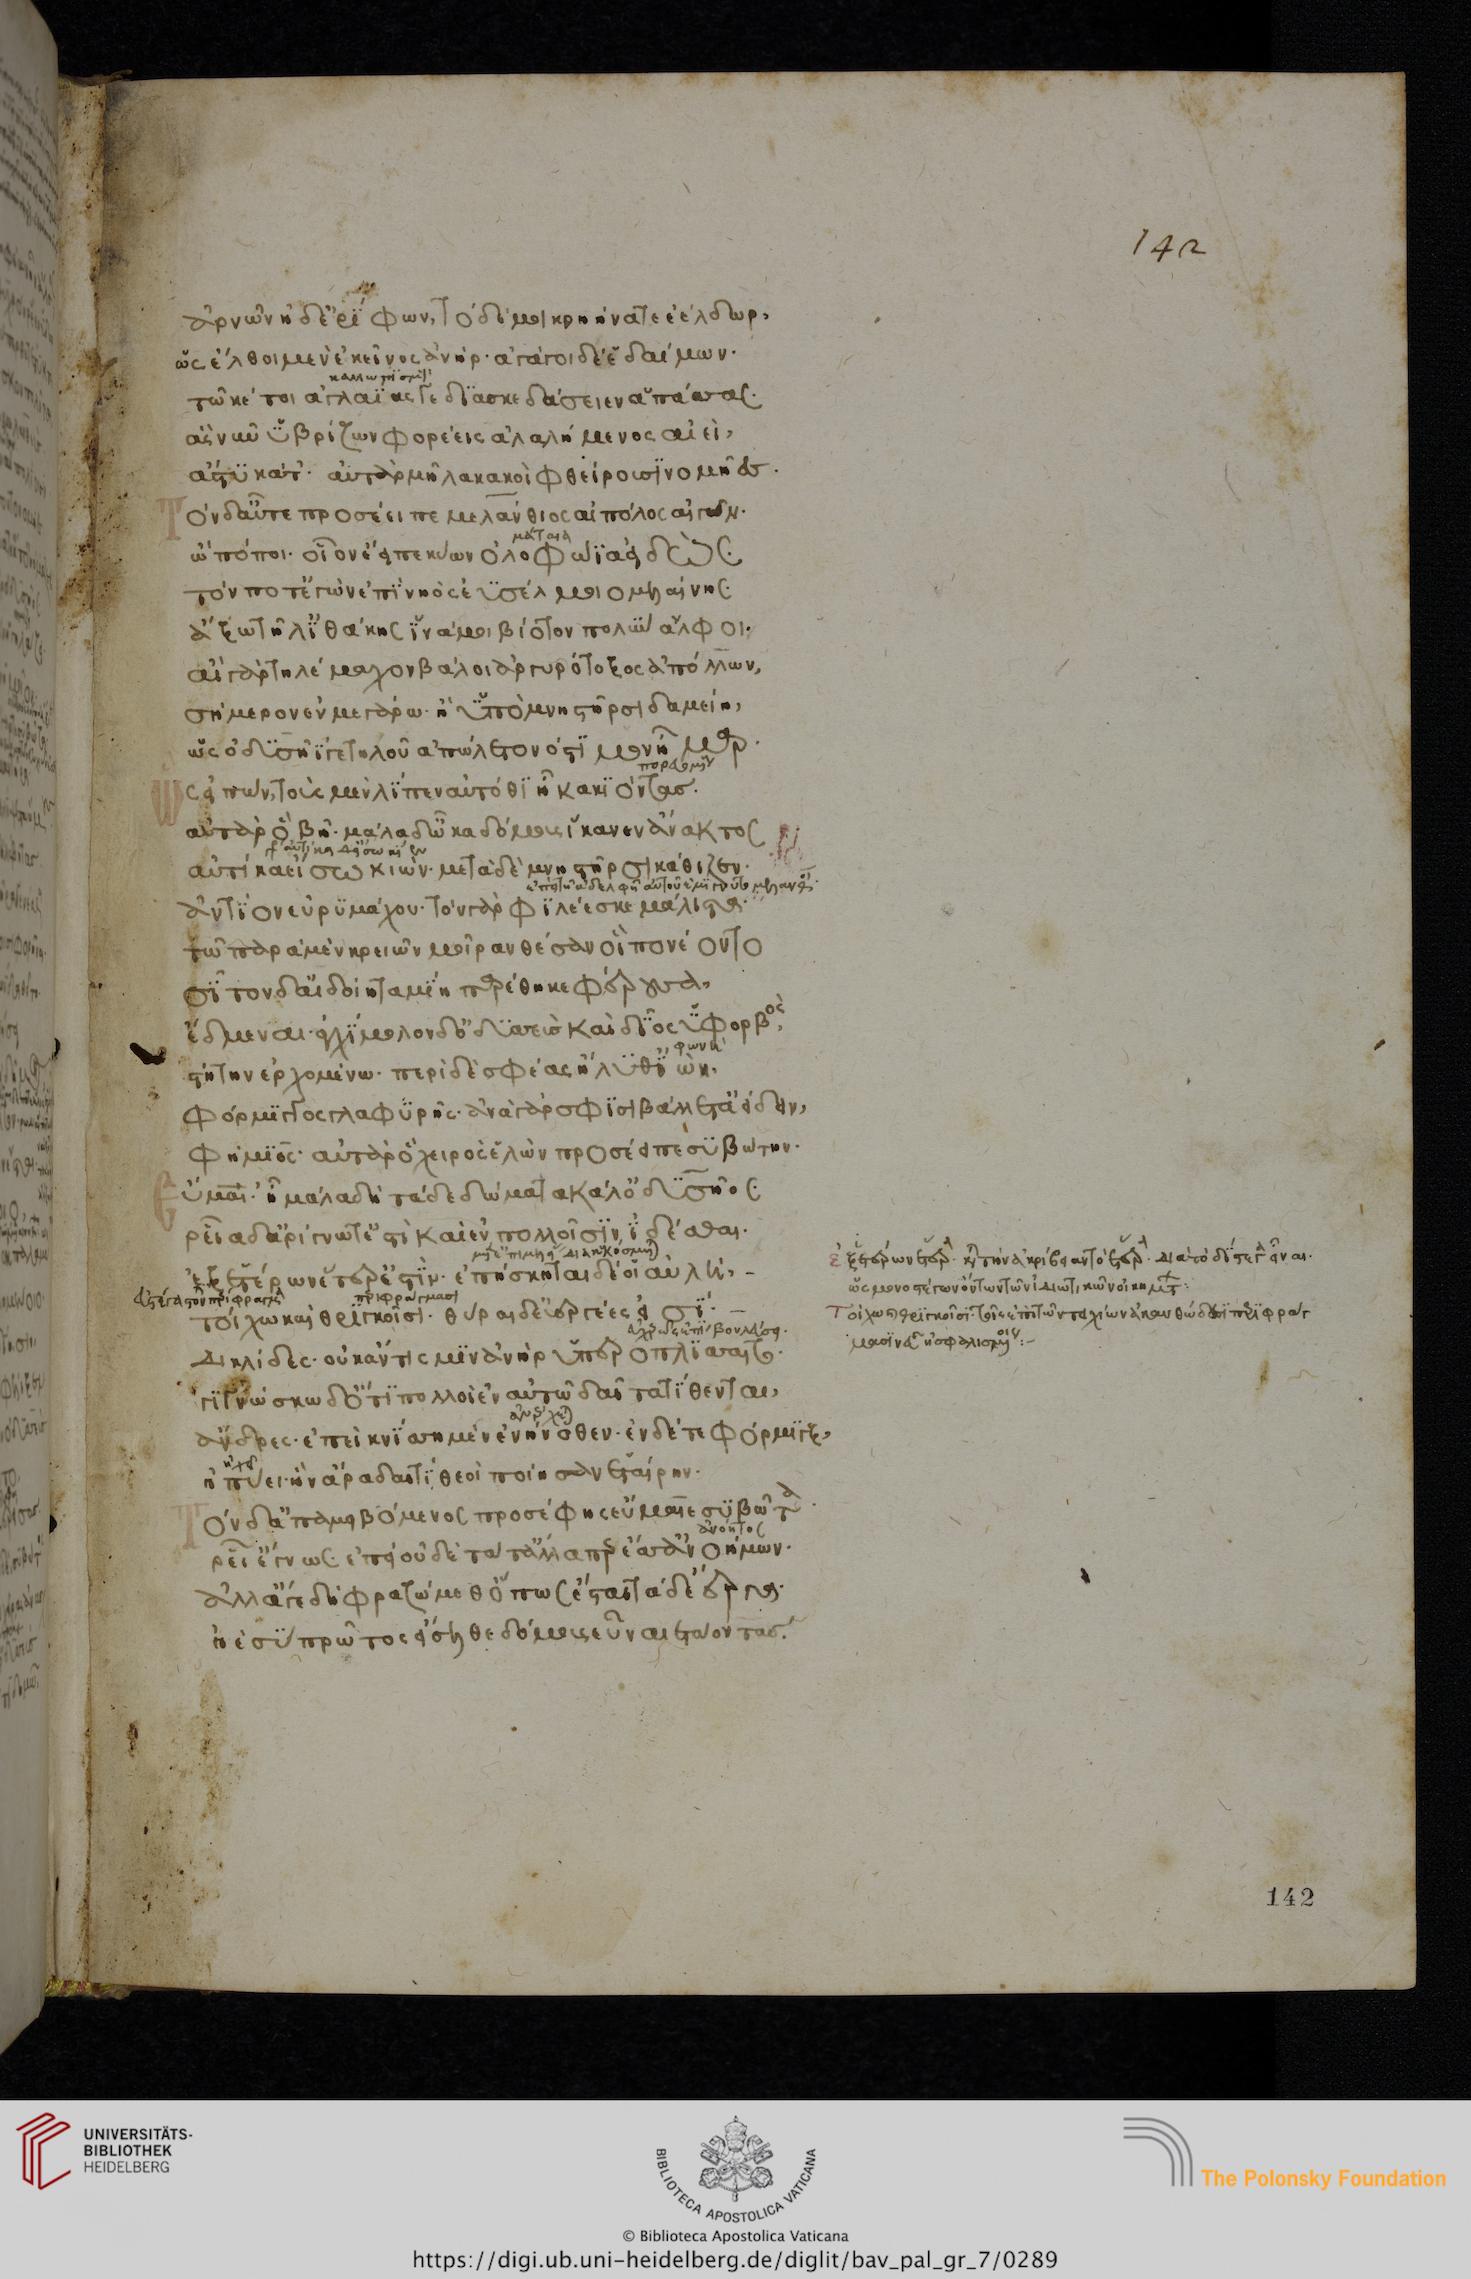 142
ἀρνῶν ἠδ' ἐρίφων, τόδε μοι κρηήνατ' ἐέλδωρ,
ὡς ἔλθοι μὲν ἐκεῖνος ἀνήρ· ἀγάγοι δέ ἑ δαίμων·
τῶ κέ τοι ἀγλαΐας γε διασκεδάσειεν ἁπάσας·
ἃς νῦν ὑβρίζων φορέεις ἀλαλήμενος αἰεὶ,
ἄστυ κάτ'· αὐτὰρ μῆλα κακοὶ φθείρουσι νομῆες·
Τὸν δ' αὖτε προσέειπε μελάνθιος αἰπόλος αἰγῶν·
μάταια
ὢ πόποι· οἷον ἔειπε κύων ὀλοφώια εἰδώς·
τόν ποτ' ἐγὼν ἐπὶ νηὸς ἐυσέλμοιο μελαίνης
ἄξω τῆλ' ἰθάκης ἵνα μοι βίοτον πολὺν ἄλφοι·
αἲ γὰρ τηλέμαχον βάλοι ἀργυρότοξος ἀπόλλων,
σήμερον ἐν μεγάρω· ἢ ὑπὸ μνηστῆρσι δαμείη,
ὡς ὀδυσῆί γε τηλοῦ ἀπώλετο νόστιμον ἦμαρ·
Ὣς εἰπὼν, τοὺς μὲν λίπεν αὐτόθι ἦκα κιόντας·
αὐτὰρ ὁ βῆ· μάλα δ' ὦκα δόμους ἵκανεν ἄνακτος
αὐτίκα εἴσω κιὼν· μετὰ δὲ μνηστῆρσι κάθιζεν·
ἀντίον εὐρυμάχου· τὸν γὰρ φιλέεσκε μάλιστα·
τῶ πάρα μὲν κρειῶν μοῖραν θέσαν οἳ πονέοντο
σῖτον δ' αἰδοίη ταμίη παρέθηκε φέρουσα,
ἔδμεναι· ἀγχίμολον δ' ὀδυσεὺς καὶ δῖος ὑφορβὸς,
φωνὴ
στήτην ἐρχομένω· περὶ δέ σφεας ἤλυθ' ἰωὴ·
φόρμιγγος γλαφυρῆς· ἀνὰ γάρ σφισι βάλλετ' ἀείδειν,
φήμιος· αὐτὰρ ὁ χειρὸς ἑλὼν προσέειπε συβώτην·
Εὔμαι'· ἦ μάλα δὴ τάδε δώματα κάλ' ὀδυσῆος·
ῥεῖα δ' ἀρίγνωτ' ἐστὶ καὶ ἐν πολλοῖσιν ἰδέσθαι·
ἐξ ἑτέρων ἕτερ' ἐστὶν· ἐπήσκηται δέ οἱ αὐλὴ,
τοίχω καὶ θριγκοῖσι· θύραι δ' εὐεργέες εἰσὶ·
δικλίδες· οὐκ ἄν τίς μιν ἀνὴρ ὑπεροπλίσαιτο·
γιγνώσκω δ' ὅτι πολλοὶ ἐν αὐτῶ δαῖτα τίθενται,
ἄνδρες· ἐπεὶ κνίση μὲν ἐνήνοθεν· ἐν δέ τε φόρμιγξ,
ἠπύει· ἣν ἄρα δαιτὶ θεοὶ ποίησαν ἑταίρην·
Τὸν δ' ἀπαμειβόμενος προσέφης εὔμαιε συβῶτα·
ἀνόητος
ῥεῖ' ἔγνως· ἐπεὶ οὐδὲ τά τ' ἄλλα πέρ ἐσσ' ἀνοήμων·
ἀλλ' ἄγε δὴ φραζώμεθ' ὅπως ἔσται τάδε ἔργα·
ἠὲ σὺ πρῶτος εἴσελθε δόμους εὖ ναιετάοντας·
142
UNIVERSITÄTS-
BIBLIOTHEK
HEIDELBERG
BIBLIOTECA APOSTOLICA VATICANA
The Polonsky Foundation
© Biblioteca Apostolica Vaticana
https://digi.ub.uni-heidelberg.de/diglit/bav_pal_gr_7/0289